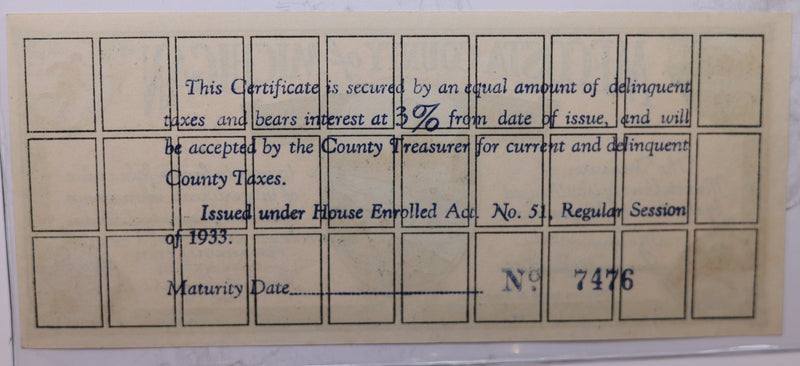 This Certificate is secured by an equal amount of delinquent
taxes and bears interest at 3% from date of issue, and will
be accepted by the County Treasurer for current and delinquent
County Taxes.
Issued under House Enrolled Act. No. 51, Regular Session
of 1933.
Maturity Date
No. 7476